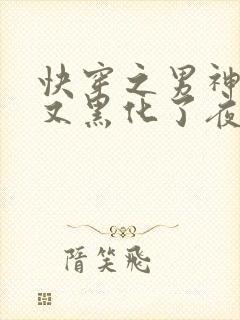 快穿之男神
又黑化了夜
隋笑飛